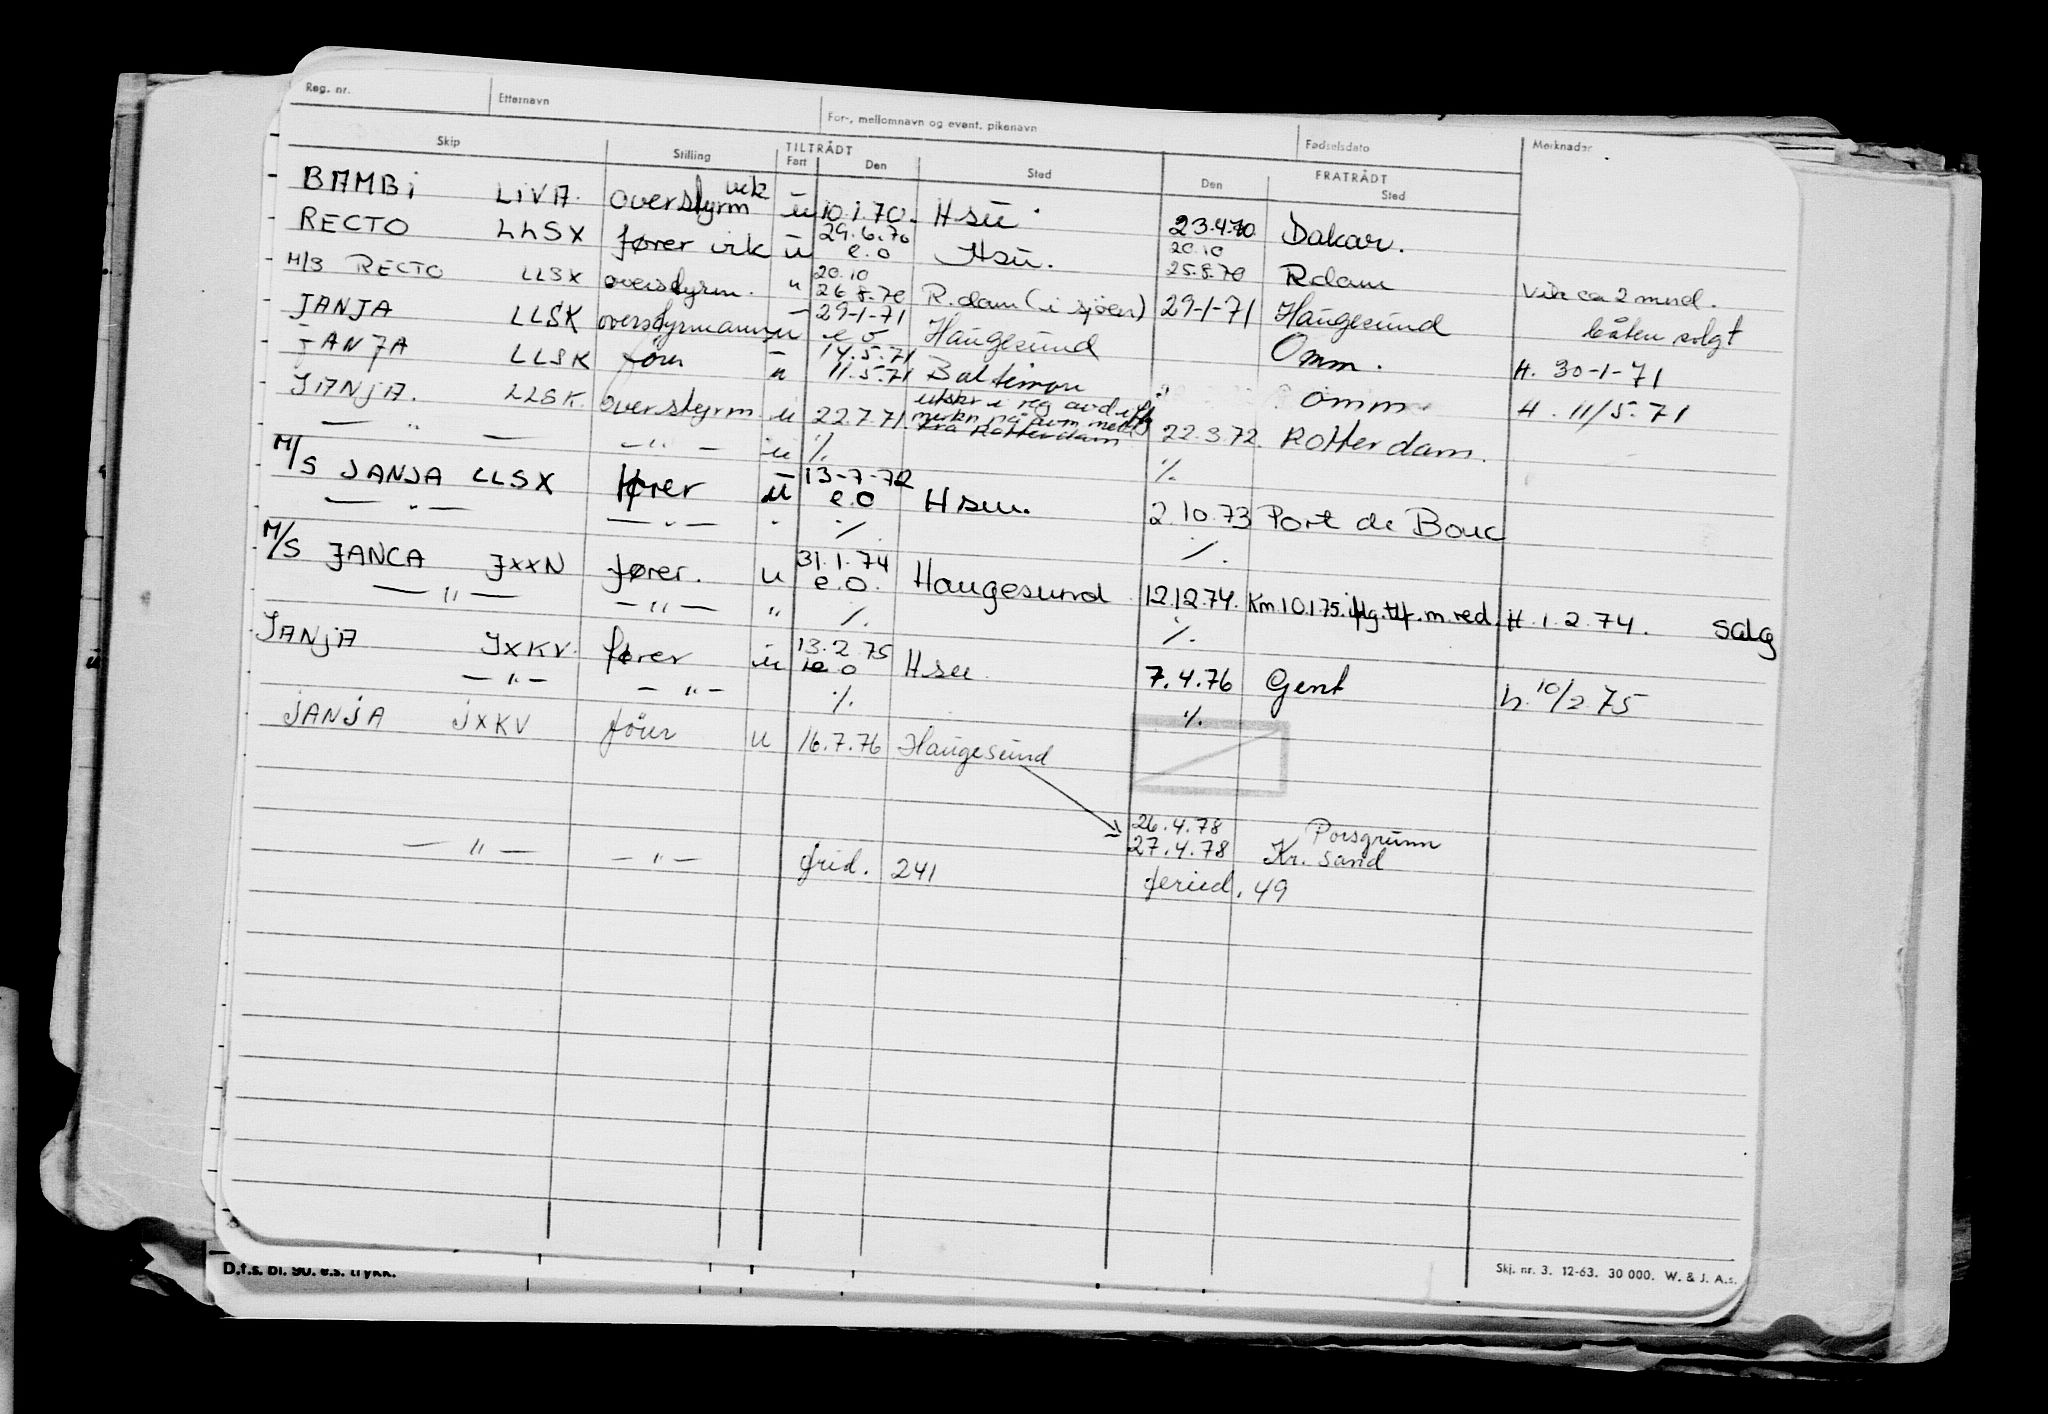 Reg. nr. Etternavn For-, mellomnavn og event. pikenavn Fødselsdato Merknader
Skip Stilling TILTRÅDT Fart Den Sted FRATRÅDT Den Sted
BAMBi LiVA. overstyrm vik u 10.1.70. Hsu 23.4.70 Dakar.
RECTO LLSX fører vik u 29.6.70 e.o Hsu. 20.10 25.8.70 Rdam Vik ca 2 mnd.
M/S RECTO LLSX overstyrm. " 20.10 26.8.70 R.dam (i sjøen) 29-1-71 Haugesund båten solgt
JANJA LLSK overstyrmann u 29-1-71 e o Haugesund Omm. H. 30-1-71
JANJA LLSK förer u 14.5.71 11.5.71 Baltimore omm H. 11/5.71
JANJA. LLSK. overstyrm. u 22.7.71. utskr i reg avd iflg merkn på avm. fra Rotterdam 22.3.72. Rotterdam.
— " — — " — u %. %.
M/S JANJA LLSX fører u 13-7-72 e.o Hsu. 2.10.73 Port de Bouc
— " — — " — " %. %.
M/S JANCA JXXN fører. u 31.1.74 e.o. Haugesund 12.12.74. Km 10.1.75. iflg. tlf. m. red. H. 1.2.74. salg
— " — — " — " %. %.
JANJA JXKV. fører u 13.2.75 e.o Hsu 7.4.76 Gent h. 10/2 75
— " — — " — %. %.
JANJA JXKV förer u 16.7.76 Haugesund
26.4.78 Porsgrunn
27.4.78 Kr. sand
— " — — " — frid. 241 feried. 49
D.f.s. bl. 90. e.s. trykk.
Skj. nr. 3. 12-63. 30 000. W. & J. A.s.